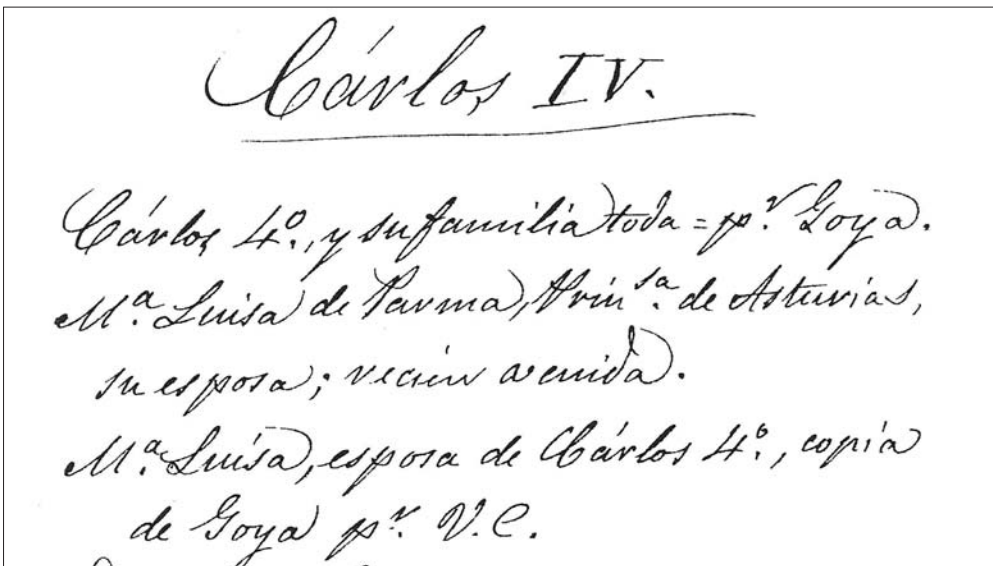 Cárlos IV.
Cárlos 4º., y su familia toda = pr. Goya.
Mª. Luisa de Parma, Prinsa. de Asturias,
su esposa; recien avenida.
Mª. Luisa, esposa de Cárlos 4º., copia
de Goya pr. V.C.